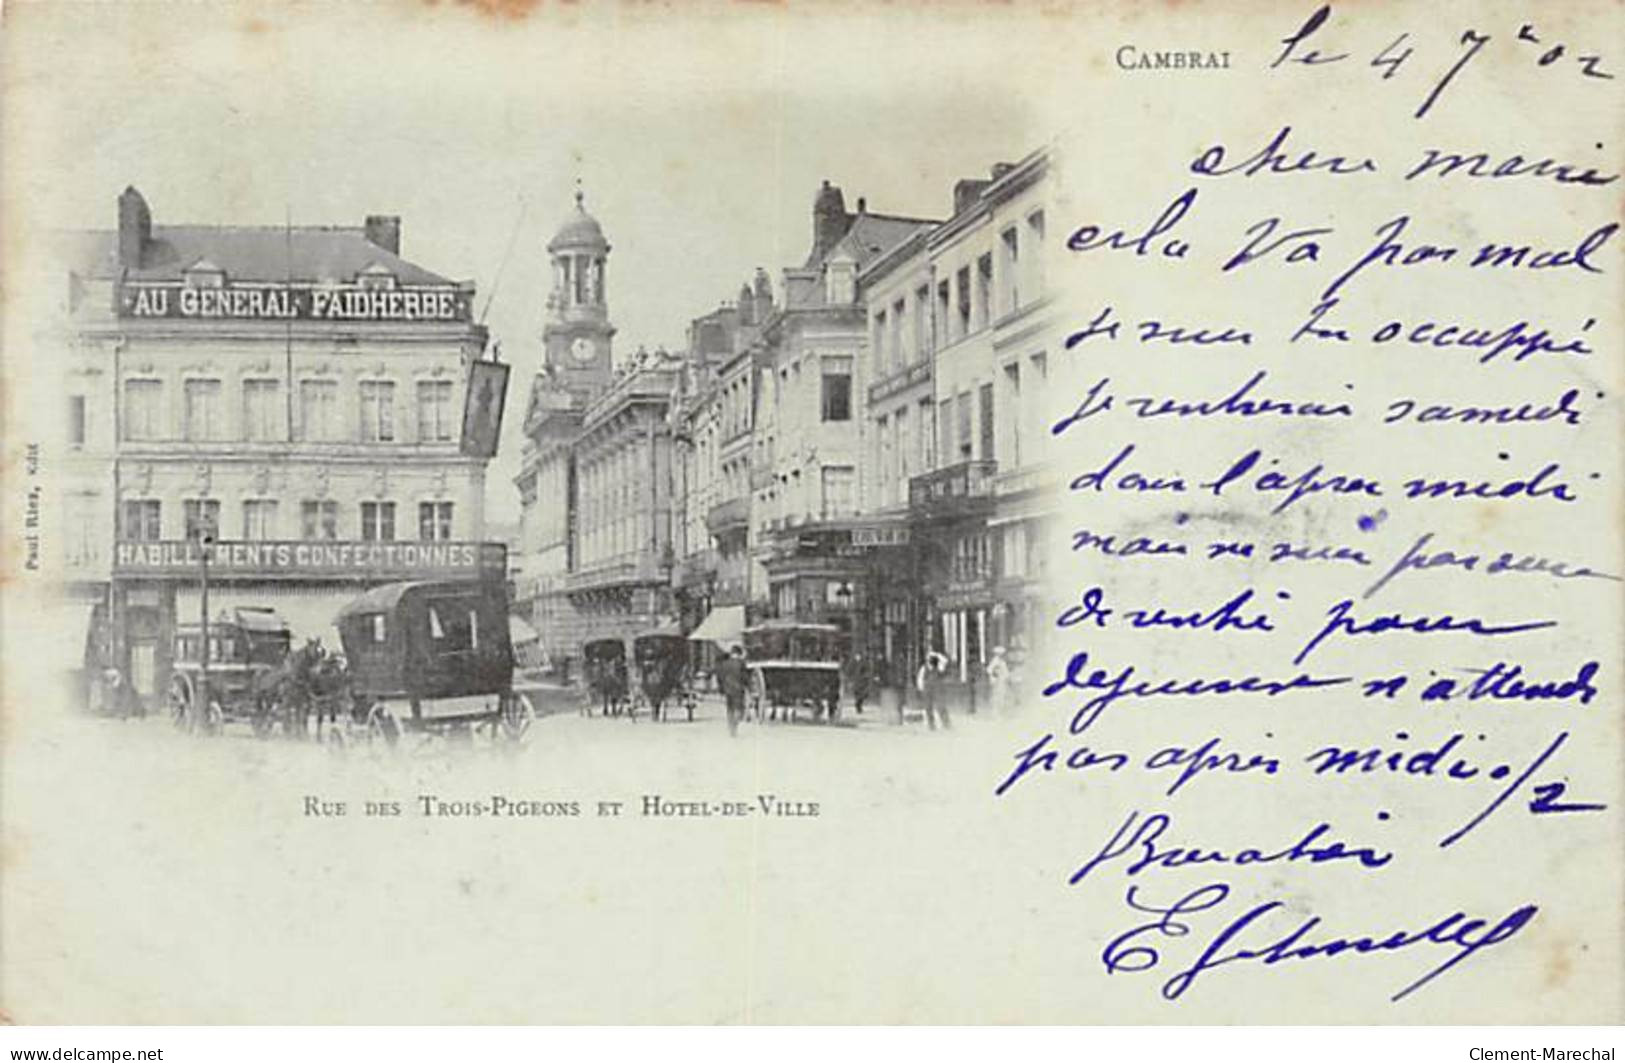 CAMBRAI le 4 7re 02
chere marie
cela va pas mal
je suis tres occuppé
je rentrerai samedi
dans l'apres midi
mais ne suis pas sur
de rentré pour
dejeuner n'attends
pas après midi 1/2
E
AU GENERAL FAIDHERBE
HABILLEMENTS CONFECTIONNES
Paul Ries, édit
RUE DES TROIS-PIGEONS ET HOTEL-DE-VILLE
www.delcampe.net
Clement-Marechal